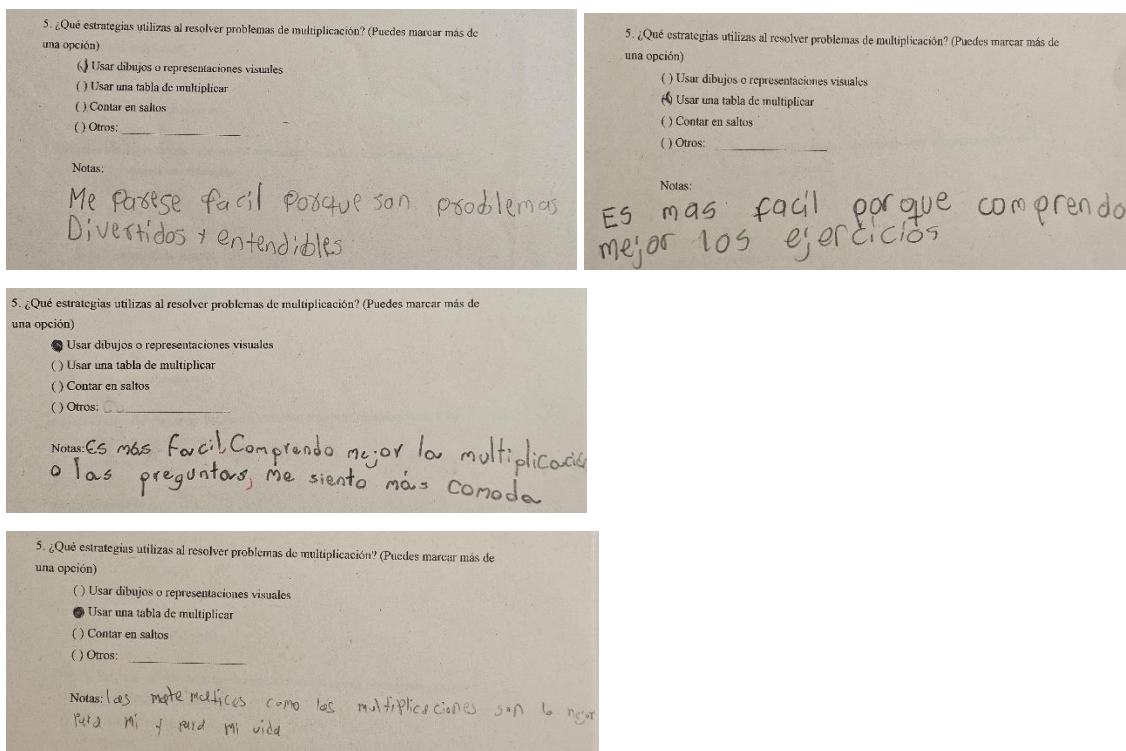 5. ¿Qué estrategias utilizas al resolver problemas de multiplicación? (Puedes marcar más de
una opción)
( ) Usar dibujos o representaciones visuales
( ) Usar una tabla de multiplicar
( ) Contar en saltos
( ) Otros: ____________
Notas:
Me Parese facil Porque son problemas
Divertidos y entendibles
5. ¿Qué estrategias utilizas al resolver problemas de multiplicación? (Puedes marcar más de
una opción)
( ) Usar dibujos o representaciones visuales
( ) Usar una tabla de multiplicar
( ) Contar en saltos
( ) Otros: ____________
Notas:
Es mas facil por que comprendo
mejor los ejercicios
5. ¿Qué estrategias utilizas al resolver problemas de multiplicación? (Puedes marcar más de
una opción)
● Usar dibujos o representaciones visuales
( ) Usar una tabla de multiplicar
( ) Contar en saltos
( ) Otros: ____________
Notas: Es más facil, Comprendo mejor la multiplicación
o las preguntas, me siento más comoda
5. ¿Qué estrategias utilizas al resolver problemas de multiplicación? (Puedes marcar más de
una opción)
( ) Usar dibujos o representaciones visuales
● Usar una tabla de multiplicar
( ) Contar en saltos
( ) Otros: ____________
Notas: las matematicas como las multiplicaciones son lo mejor
para mi y para mi vida